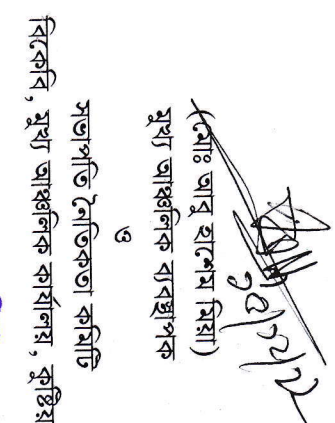 (মোঃ আবু হাশেম মিয়া)
মুখ্য আঞ্চলিক ব্যবস্থাপক
ও
সভাপতি নৈতিকতা কমিটি
বিকেবি, মুখ্য আঞ্চলিক কার্যালয়, কুষ্টিয়